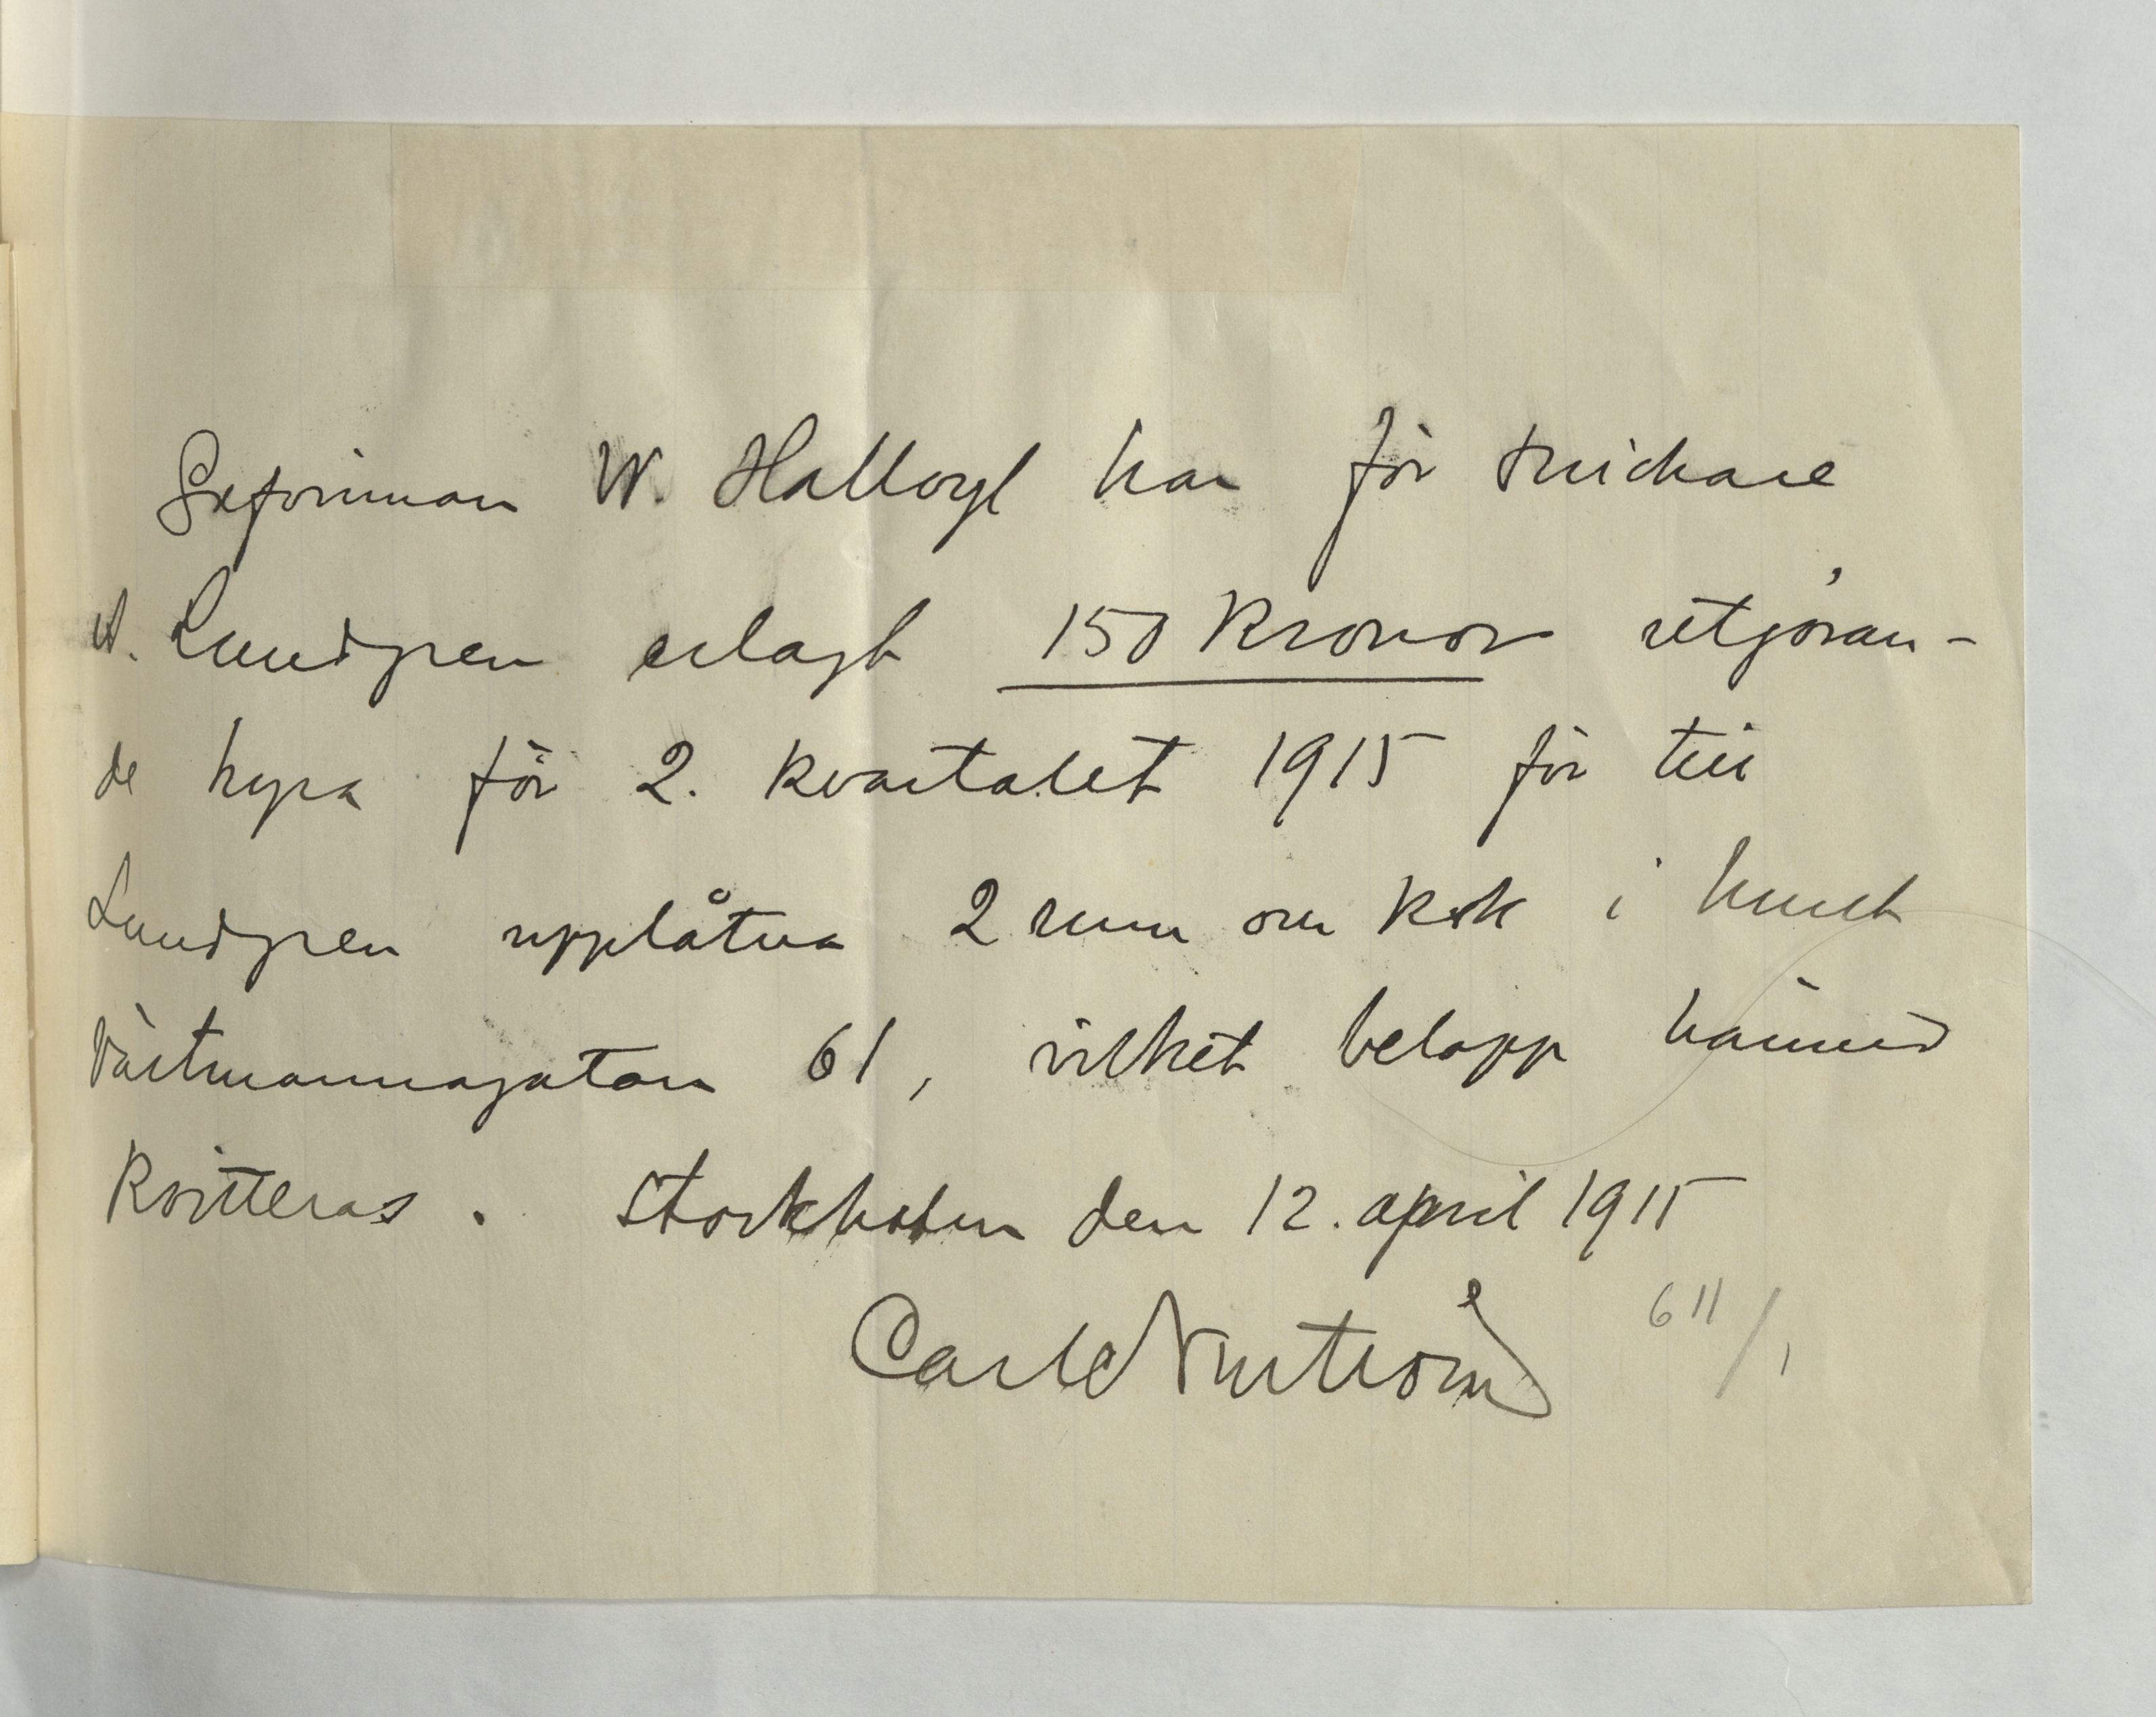 Exforman W. Hallwyl har för snickare
A. Lundgren erlagt 150 kronor utgöran-
de hyra för 2. kvartalet 1915 för till
Lundgren upplåtna 2 rum om kök i huset
Västmannagatan 61, vilket belopp härmed
kvitteras. Stockholm den 12. april 1915
Carl
611/1